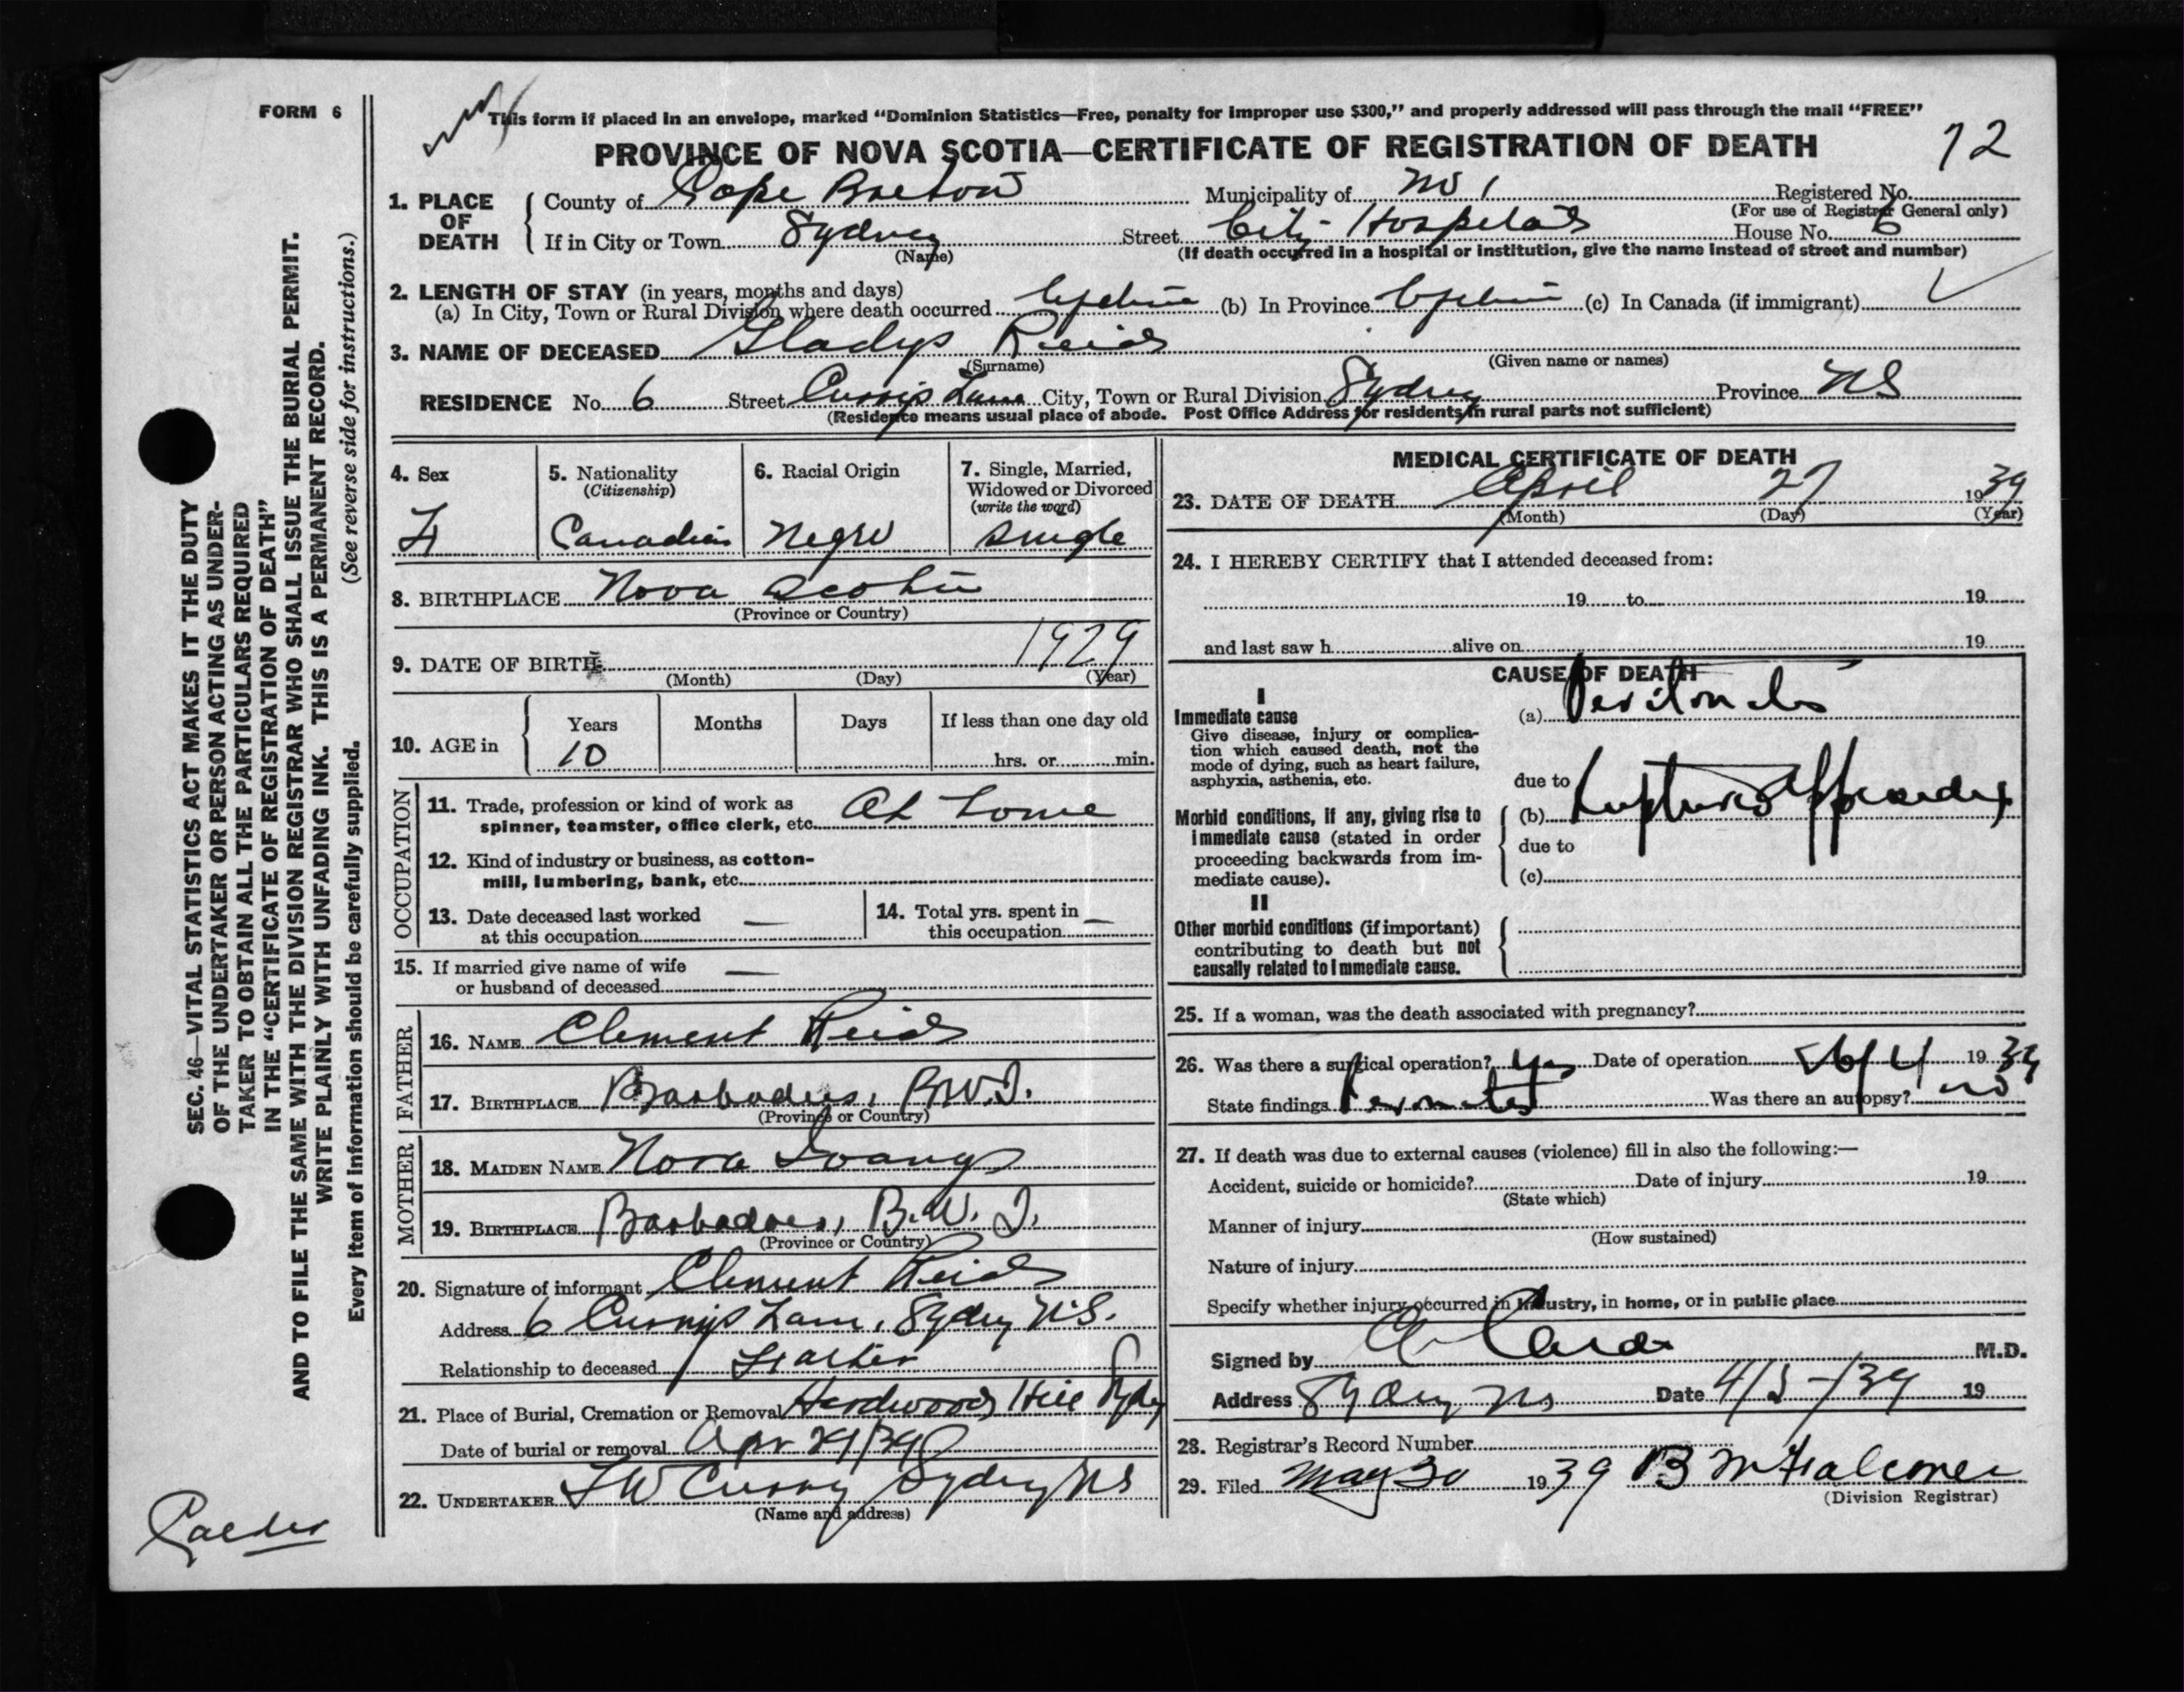 FORM 6
This form if placed in an envelope, marked "Dominion Statistics—Free, penalty for improper use $300," and properly addressed will pass through the mail "FREE"
PROVINCE OF NOVA SCOTIA—CERTIFICATE OF REGISTRATION OF DEATH
72
1. PLACE OF DEATH
County of Cape Breton Municipality of No 1 Registered No.
(For use of Registrar General only)
If in City or Town Sydney Street City Hospital House No. 6
(Name)
(If death occurred in a hospital or institution, give the name instead of street and number)
2. LENGTH OF STAY (in years, months and days)
(a) In City, Town or Rural Division where death occurred Lifetime (b) In Province Lifetime (c) In Canada (if immigrant)
3. NAME OF DECEASED Gladys Reid
(Surname) (Given name or names)
RESIDENCE No. 6 Street Currys Lane City, Town or Rural Division Sydney Province NS
(Residence means usual place of abode. Post Office Address for residents in rural parts not sufficient)
4. Sex
F
5. Nationality
(Citizenship)
Canadian
6. Racial Origin
Negro
7. Single, Married,
Widowed or Divorced
(write the word)
Single
8. BIRTHPLACE Nova Scotia
(Province or Country)
9. DATE OF BIRTH 1929
(Month) (Day) (Year)
10. AGE in
Years Months Days If less than one day old
10 hrs. or min.
OCCUPATION
11. Trade, profession or kind of work as
spinner, teamster, office clerk, etc. At Home
12. Kind of industry or business, as cotton-
mill, lumbering, bank, etc.
13. Date deceased last worked —
at this occupation
14. Total yrs. spent in —
this occupation
15. If married give name of wife —
or husband of deceased
FATHER
16. NAME Clement Reid
17. BIRTHPLACE Barbados, B.W.I.
(Province or Country)
MOTHER
18. MAIDEN NAME Nora
19. BIRTHPLACE Barbadoes, B.W.I.
(Province or Country)
20. Signature of informant Clement Reid
Address 6 Currys Lane, Sydney N.S.
Relationship to deceased Father
21. Place of Burial, Cremation or Removal Hardwood Hill Sydney
Date of burial or removal Apr 29/39
22. UNDERTAKER F W Curry Sydney NS
(Name and address)
MEDICAL CERTIFICATE OF DEATH
23. DATE OF DEATH April 27 1939
(Month) (Day) (Year)
24. I HEREBY CERTIFY that I attended deceased from:
19 to 19
and last saw h alive on 19
CAUSE OF DEATH
I
Immediate cause
Give disease, injury or complica-
tion which caused death, not the
mode of dying, such as heart failure,
asphyxia, asthenia, etc.
(a) Peritonitis
due to
Morbid conditions, if any, giving rise to
immediate cause (stated in order
proceeding backwards from im-
mediate cause).
(b) Ruptured Appendix
due to
(c)
II
Other morbid conditions (if important)
contributing to death but not
causally related to immediate cause.
25. If a woman, was the death associated with pregnancy?
26. Was there a surgical operation? Yes Date of operation 1939
State findings Was there an autopsy? no
27. If death was due to external causes (violence) fill in also the following:—
Accident, suicide or homicide? Date of injury 19
(State which)
Manner of injury
(How sustained)
Nature of injury
Specify whether injury occurred in industry, in home, or in public place
Signed by M.D.
Address Sydney NS Date 4/5-/39 19
28. Registrar's Record Number
29. Filed May 30 1939 B McFalconer
(Division Registrar)
SEC. 46—VITAL STATISTICS ACT MAKES IT THE DUTY
OF THE UNDERTAKER OR PERSON ACTING AS UNDER-
TAKER TO OBTAIN ALL THE PARTICULARS REQUIRED
IN THE "CERTIFICATE OF REGISTRATION OF DEATH"
AND TO FILE THE SAME WITH THE DIVISION REGISTRAR WHO SHALL ISSUE THE BURIAL PERMIT.
WRITE PLAINLY WITH UNFADING INK. THIS IS A PERMANENT RECORD.
(See reverse side for instructions.)
Every item of information should be carefully supplied.